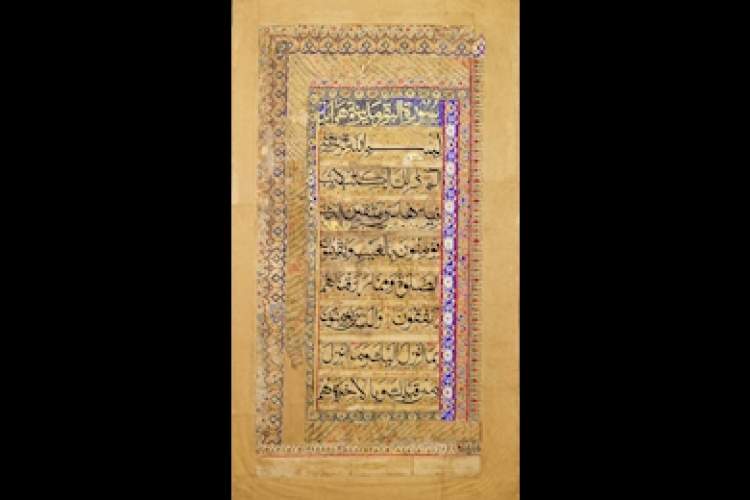 سورة البقرة
بسم الله الرحمن الرحيم
الم ذلك الكتب لا ريب
فيه هدى للمتقين الذين
يؤمنون بالغيب ويقيمون
الصلوة ومما رزقناهم
ينفقون والذين يؤمنون
بما انزل اليك وما انزل
من قبلك وبالاخرة هم